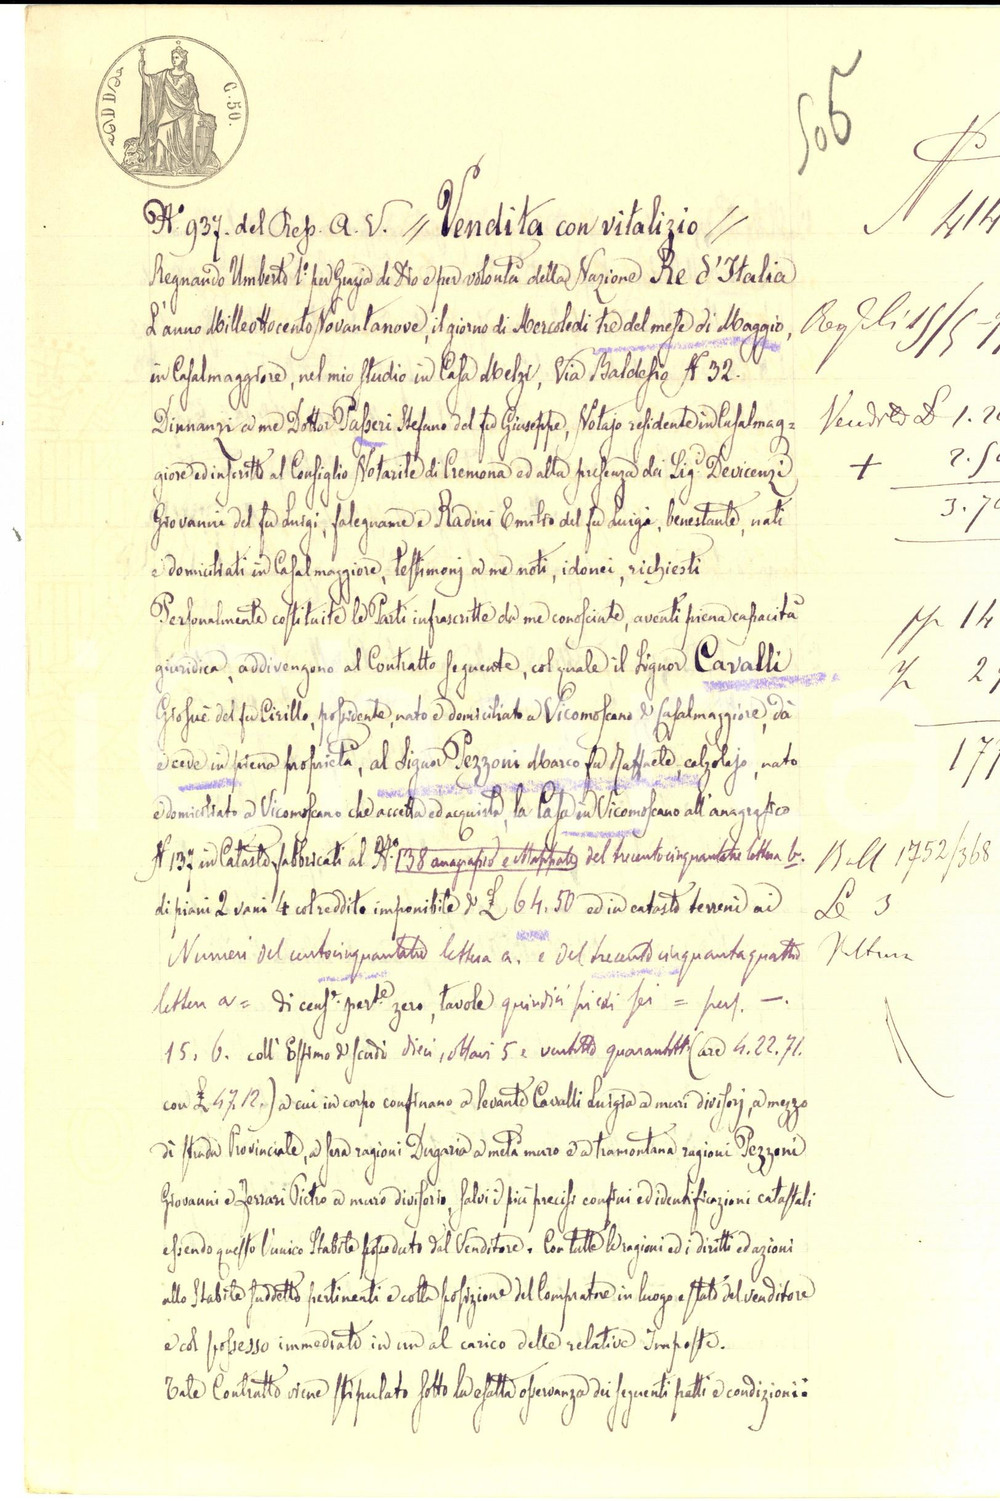 C. 50.
505
N.° 937. del Rep. A. V. // Vendita con vitalizio //
N
414
Regnando Umberto I.° per Grazia di Dio e per volontà della Nazione Re d'Italia
L'anno Milleottocento Novantanove, il giorno di Mercoledì tre del mese di Maggio,
in Casalmaggiore, nel mio studio in Casa Melzi, Via Baldesio N 32.
Dinnanzi a me Dottor Passeri Stefano del fu Giuseppe, Notajo residente in Casalmag=
Vendita £ 1.20
giore ed inscritto al Consiglio Notarile di Cremona ed alla presenza dei Sig.i Devicenzi
+ 2.50
Giovanni del fu Luigi, falegname e Radini Emilio del fu Luigi, benestante, nati
3.70
e domiciliati in Casalmaggiore, testimonj a me noti, idonei, richiesti
Personalmente costituite le Parti infrascritte da me conosciute, aventi piena capacità
14
giuridica, addivengono al Contratto seguente, col quale il Signor Cavalli
2
Giosuè del fu Cirillo, possidente, nato e domiciliato a Vicomoscano di Casalmaggiore, dà
e cede in piena proprietà, al Signor Pezzoni Marco fu Raffaele, calzolajo, nato
177
e domiciliato a Vicomoscano che accetta ed acquista, la Casa in Vicomoscano all'anagrafico
N 137 in Catasto fabbricati al N.° 138 anagrafico e Mappale del trecentocinquantatre lettera b.
Boll 1752/368
di piani 2 vani 4 col reddito imponibile di £ 64.50 ed in catasto terreni ai
£ 3
Numeri del centocinquantatre lettera a. e del trecentocinquantaquattro
Voltura
lettera a = di cens.e pert.e zero, tavole quindici piedi sei = pert. —.
15. 6. coll'Estimo di scudi dieci, ottavi 5 e ventotto quarantotti (are 4.22.71.
con £ 47.12.) a cui in corpo confinano a levante Cavalli Luigia a muri divisorj, a mezzo
di strada Provinciale, a sera ragioni Dugaria a metà muro e a tramontana ragioni Pezzoni
Giovanni e Ferrari Pietro a muro divisorio, salvi i più precisi confini ed identificazioni catastali
essendo questo l'unico Stabile posseduto dal Venditore. Con tutte le ragioni ed i diritti ed azioni
allo Stabile suddetto pertinenti e colla posizione del Compratore in luogo e stato del venditore
e col possesso immediato in un al carico delle relative Imposte.
Tale Contratto viene stipulato sotto la esatta osservanza dei seguenti patti e condizioni: